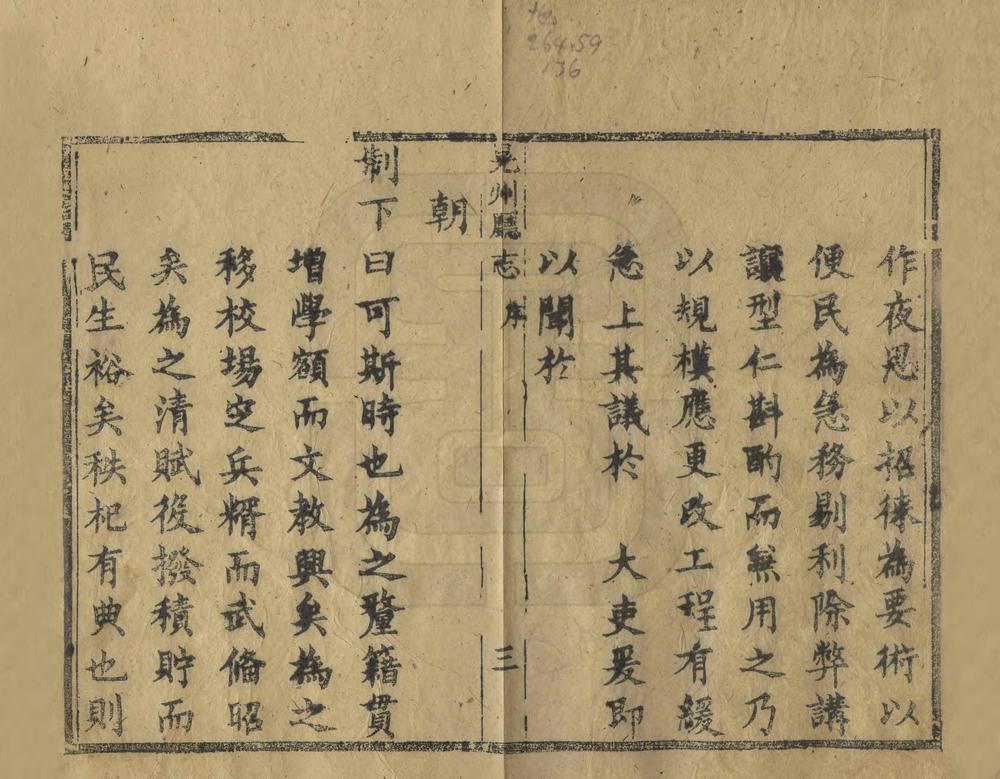 作夜思以招徠為要術以
便民為急務剔利除弊講
讓型仁斟酌而無用之乃
以規模應更改工程有緩
急上其議於　大吏爰即
以聞於
晃州廳志 序 三
朝
制下曰可斯時也為之釐籍貫
增學額而文教興矣為之
移校場定兵糈而武備昭
矣為之清賦役撥積貯而
民生裕矣秩祀有典也則
地
264.59
136